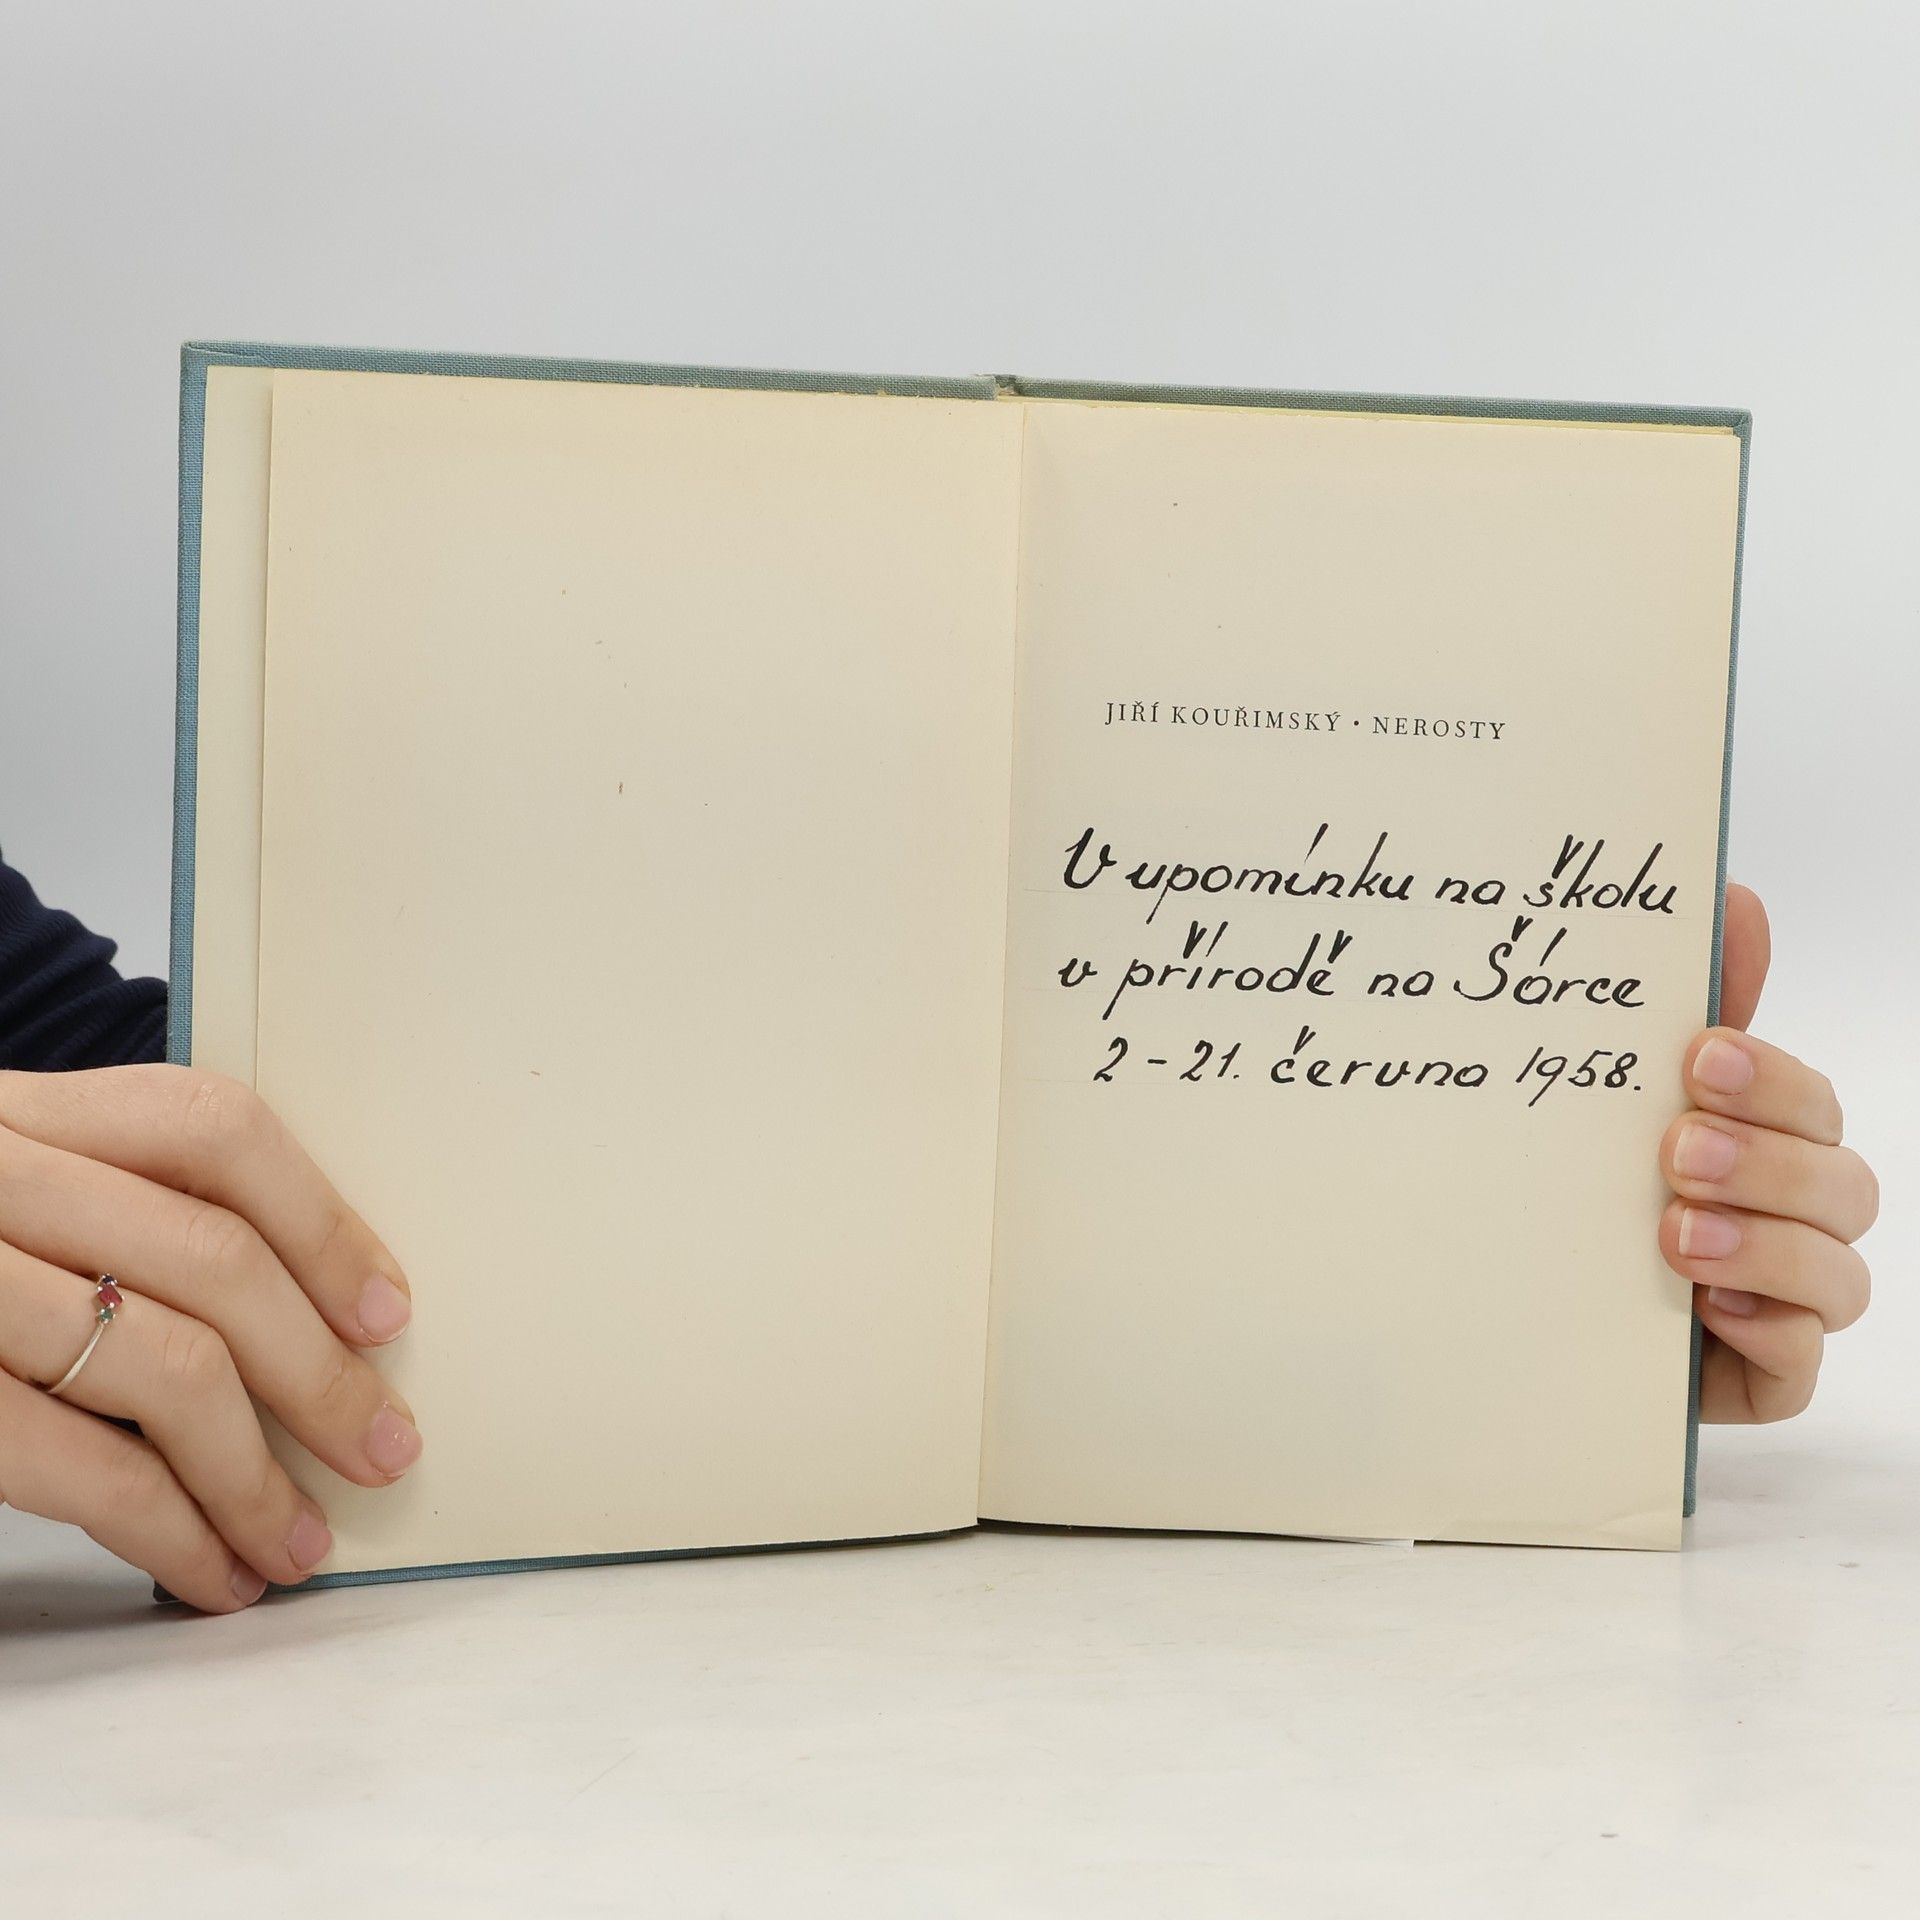 JIŘÍ KOUŘIMSKÝ • NEROSTY
V upomínku na školu
v přírodě na Šárce
2 - 21. června 1958.